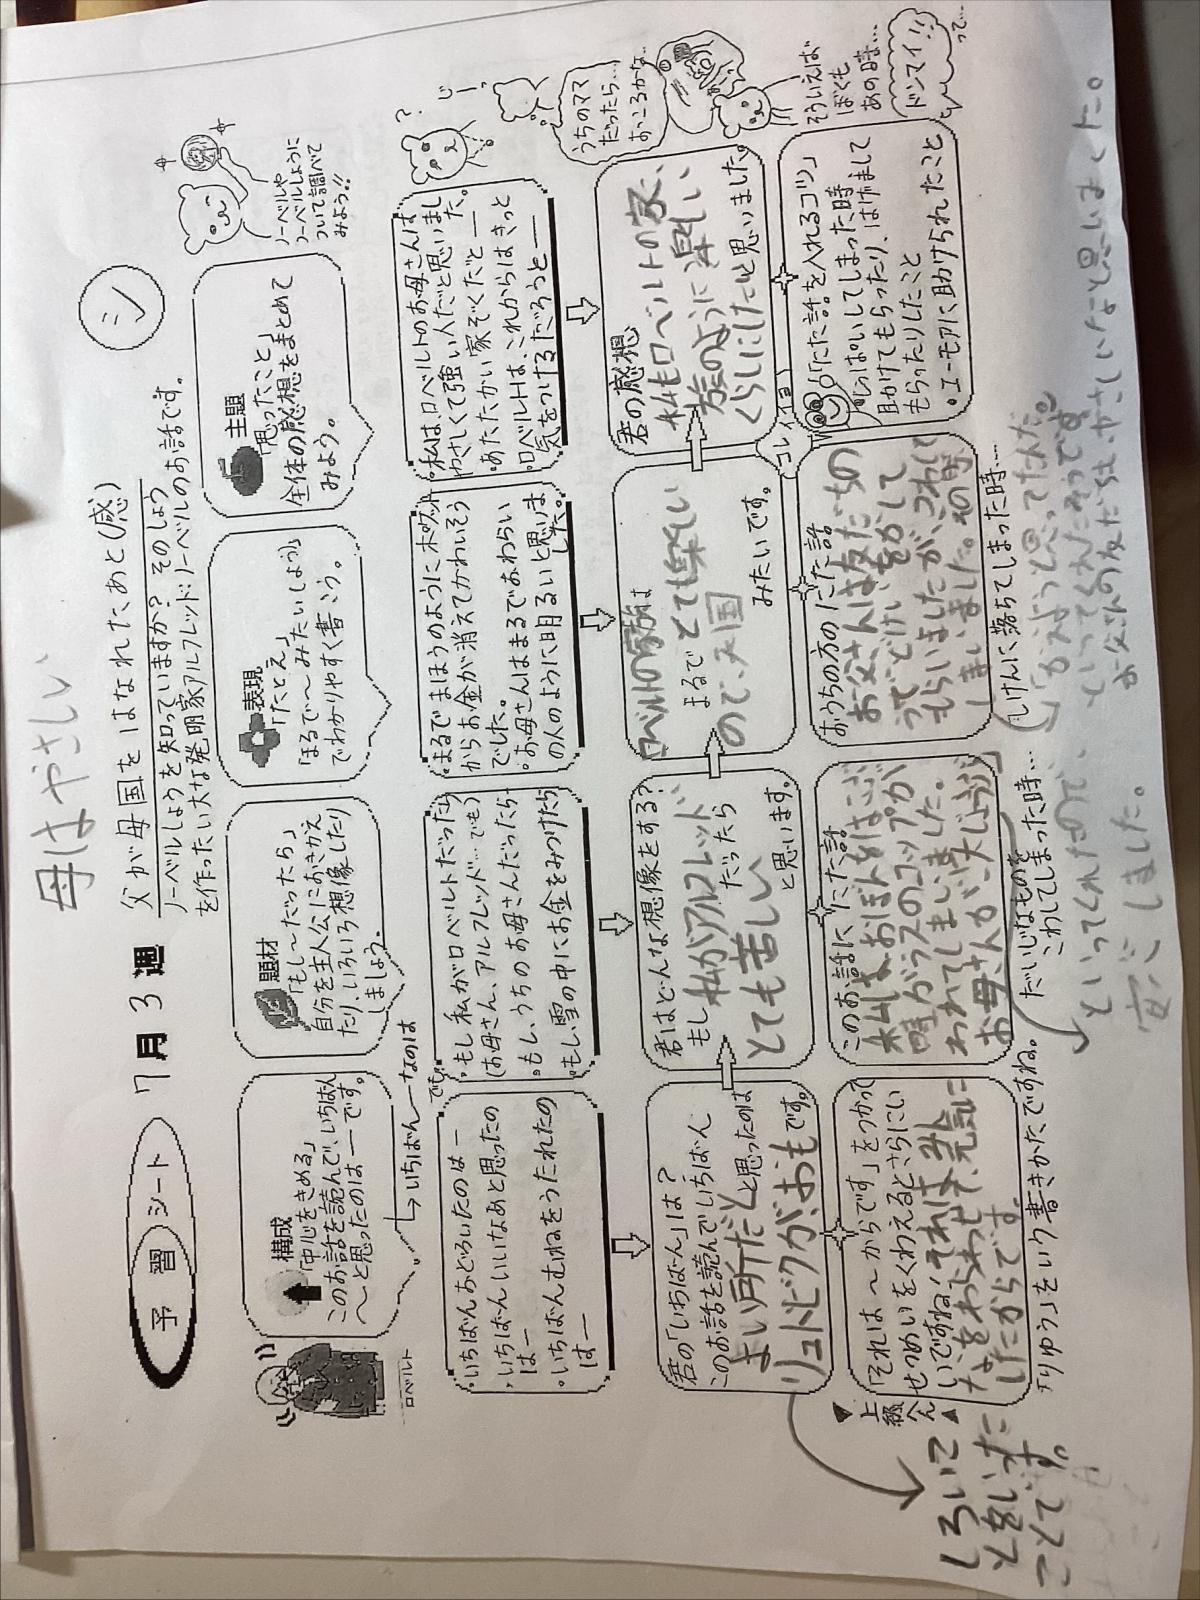 母はやさしい
予習シート
7月3週
父が母国をはなれたあと(感)
シ
ノーベルしょうを知っていますか?そのしょう
を作ったい大な発明家アルフレッド・ノーベルのお話です。
ノーベルや
ノーベルしょうに
ついて調べて
みよう!!
ロベルト
構成
「中心をきめる」
このお話を読んで、いちばん
〜と思ったのは―です。
→いちばん―なのは
でも。
題材
「もし〜だったら」
自分を主人公におきかえ
たり、いろいろ想像したり
しましょう。
表現
「たとえ」
「まるで〜みたいしょう」
でわかりやすく書こう。
主題
「思ったこと」
全体の感想をまとめて
みよう。
。いちばんおどろいたのは―
。いちばんいいなあと思ったの
は―
。いちばんむねをうたれたの
は―
。もし私がロベルトだったら
(お母さん、アルフレッド…でも)
。もし、うちのお母さんだったら
。もし雪の中にお金をみつけたら
。まるでまほうのようにポケット
からお金が消えてかわいそう
でした。
。お母さんはまるでおわらい
の人のように明るいと思いま
した。
。私は、ロベルトのお母さんは
やさしくて強い人だと思いまし
た。
。あたたかい家ぞくだと―
。ロベルトは、これからはきっと
気をつけるだろうと―
?
じーっ
うちのママ
だったら…
おこるかな…
君の「いちばん」は?
このお話を読んでいちばん
よい所だなと思ったのは
リュトビクが、おもです。
しろいこ
とをいった
ことです。
君はどんな想像をする?
もし私がアルフレッド
だったら
とても苦しい
と思います。
ノーベルトの家族は
まるでとても楽しい
ので、天国
みたいです。
君の感想
私もロベルトの家
族のように楽しい
くらしにしたいと思いました。
▼上級へん▲
「それは〜からです」をつかって
せつめいをくわえるとさらにい
いですね!それは、みん
なをわらわせ、元気に
したからです。
「りゆう」をいう書きかたですね。
このお話ににた話
私は、おぼんをはこぶ
時ガラスのコップが
われてしまい、
お母さんが「大じょうぶ」
だいじなものを
こわしてしまった時…
といってくれたので、
安心しました。
おうちの方のにた話
お父さんは友だちの
もらいましたが、こわして
しまいました。その時、
しけんに落ちてしまった時…
といってくれたそうです
お父さんの友だちは、やさしいなと思いました。
コレイイヨ
「にた話を入れるコツ」
。しっぱいしてしまった時
助けてもらったり、はげまして
もらったりしたこと
。ユーモアに助けられたこと
そういえば
ぼくも
あの時…
ドンマイ!!
って…